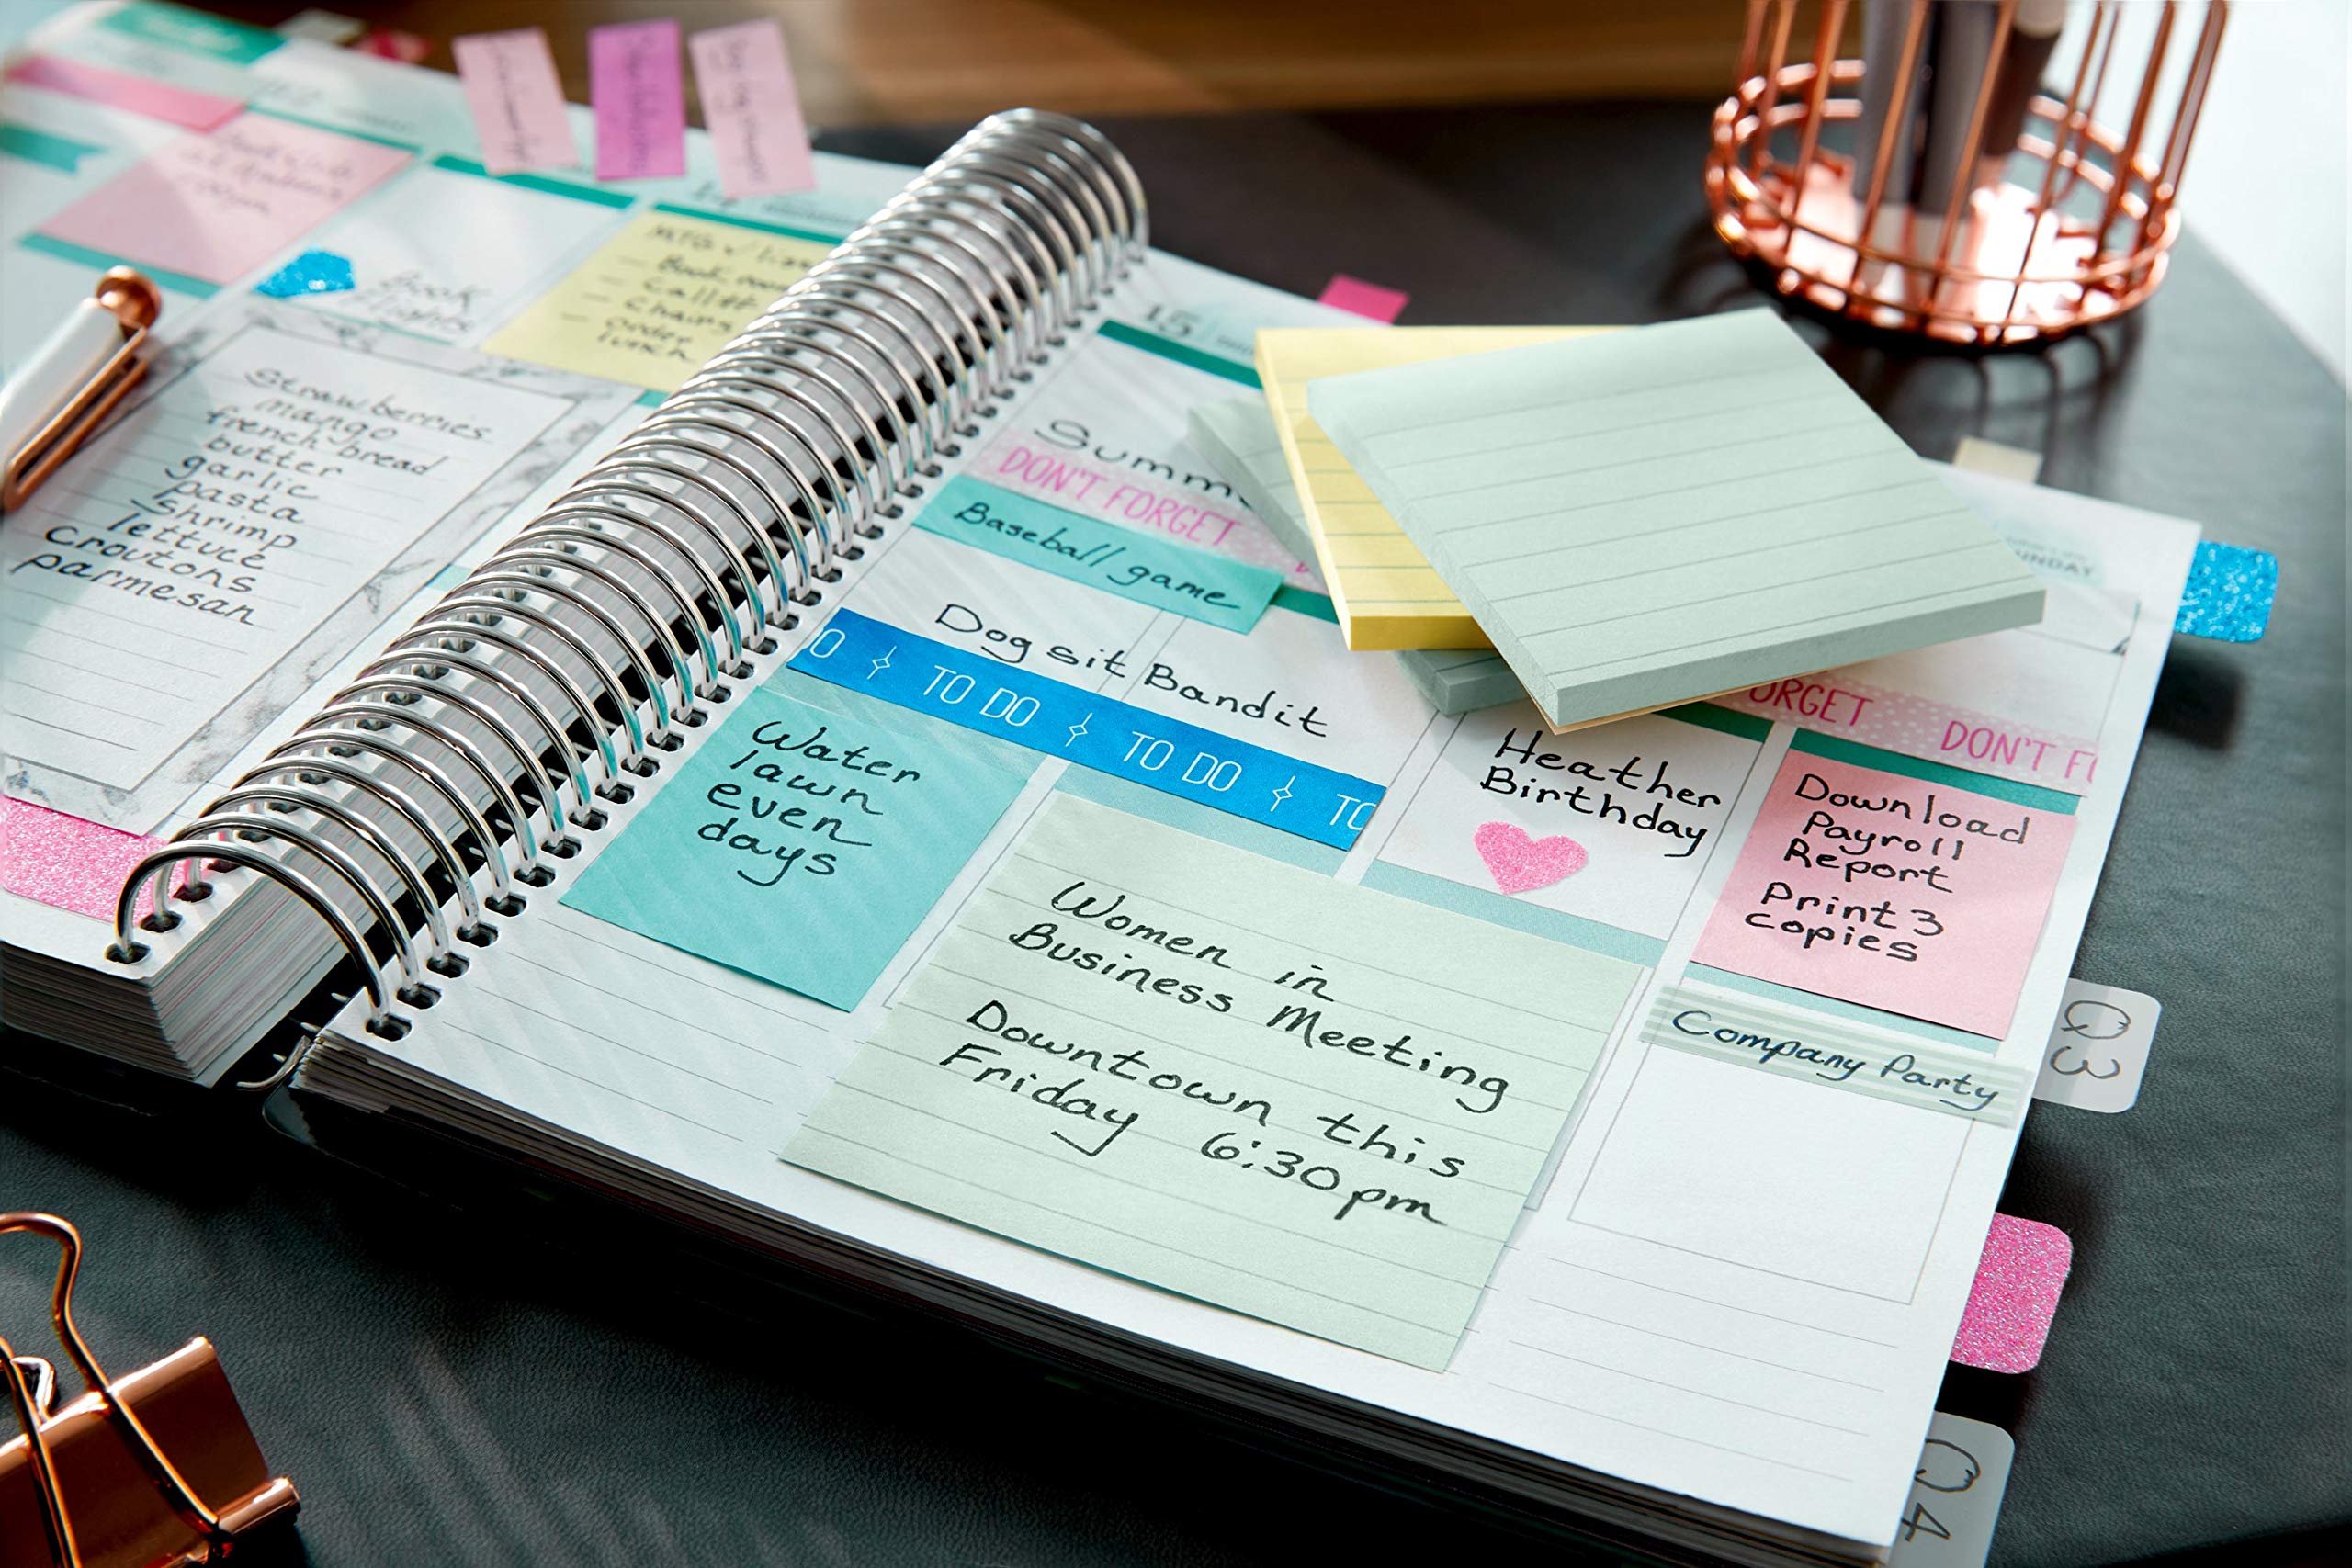 Book
flights
Book room
Chairs
order
lunch
Strawberries
mango
french bread
butter
garlic
pasta
shrimp
lettuce
croutons
parmesan
15
Summ
DON'T FORGET
Baseball game
Dog sit Bandit
O TO DO TO DO TO
Water
lawn
even
days
Women in
Business Meeting
Downtown this
Friday 6:30pm
UNDAY
ORGET DON'T F
Heather
Birthday
Download
Payroll
Report
Print 3
copies
Company Party
Q3
Q4